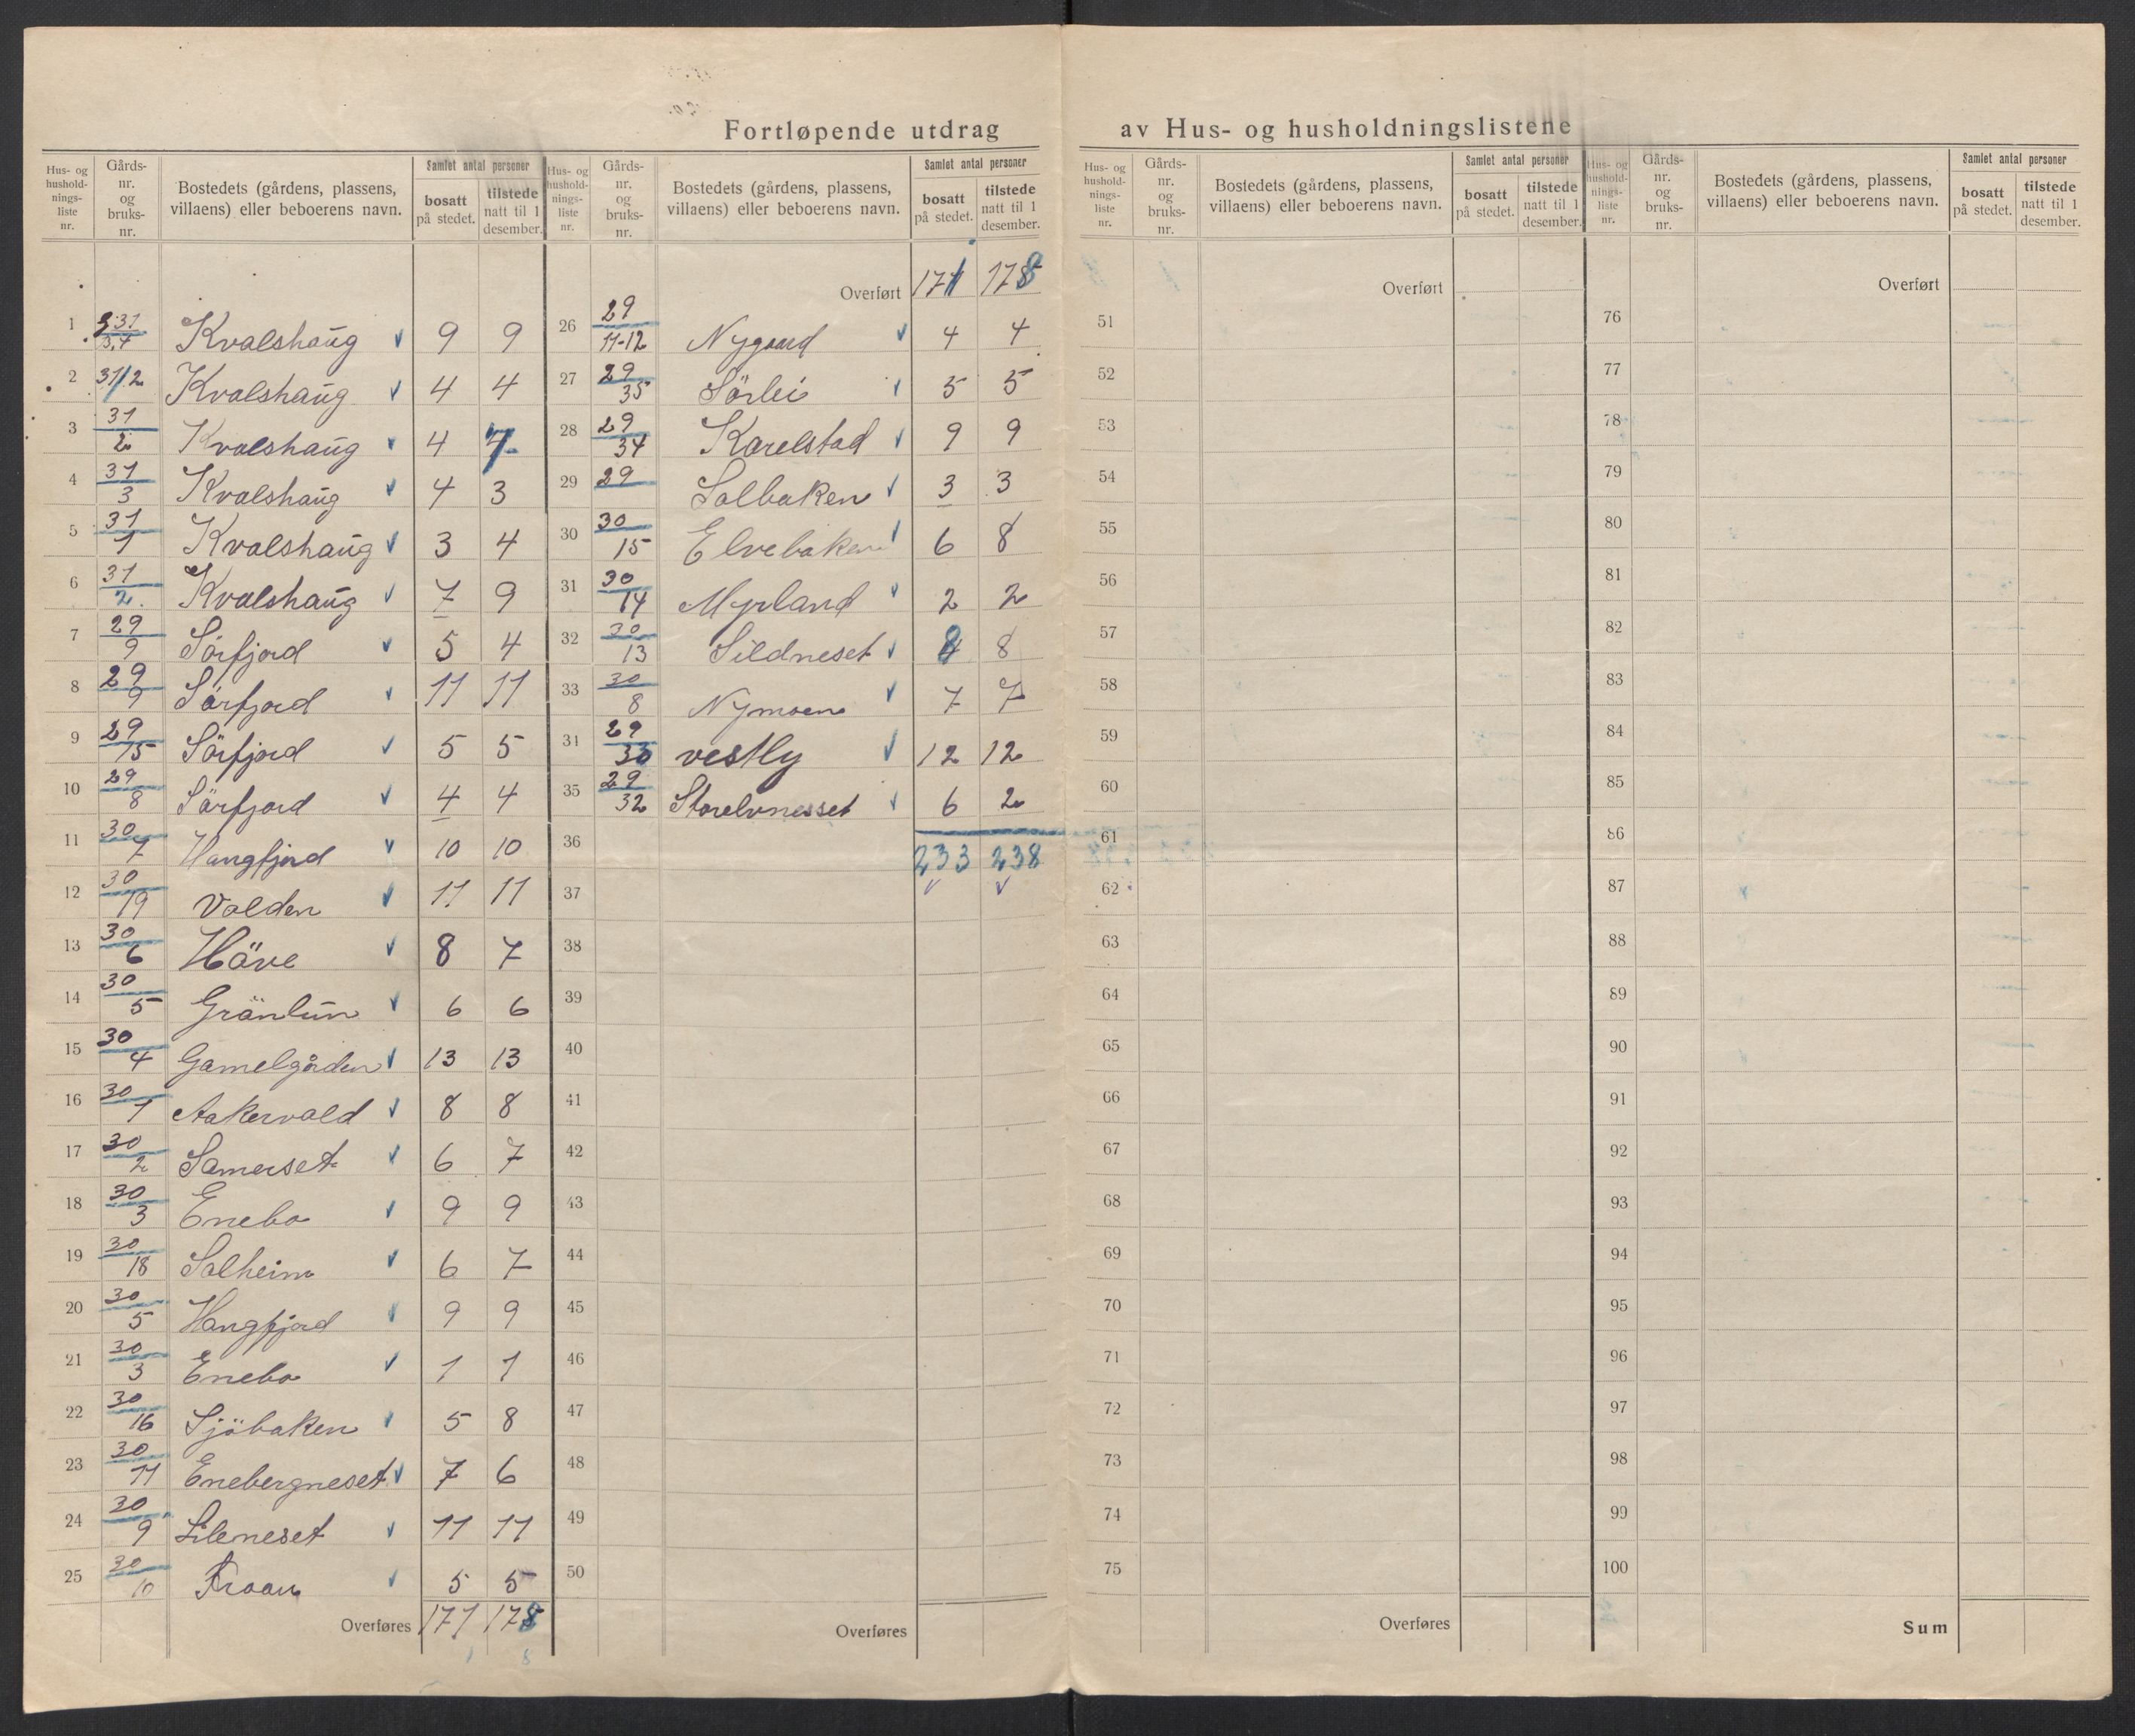 Fortløpende utdrag av Hus- og husholdningslistene
Hus- og husholdningsliste nr. Gårds-nr. og bruks-nr. Bostedets (gårdens, plassens, villaens) eller beboerens navn. Samlet antal personer bosatt på stedet. tilstede natt til 1 desember.
1 31 Kvalshaug 9 9
2 31/2 Kvalshaug 4 4
3 31/2 Kvalshaug 4 7
4 31/3 Kvalshaug 4 3
5 31/1 Kvalshaug 3 4
6 31/2 Kvalshaug 7 9
7 29/9 Sörfjord 5 4
8 29/9 Sörfjord 11 11
9 29/15 Sörfjord 5 5
10 29/8 Sörfjord 4 4
11 30/7 Hangfjord 10 10
12 30/19 Valden 11 11
13 30/6 Häve 8 7
14 30/5 Gränlün 6 6
15 30/4 Gamelgården 13 13
16 30/1 Aakervold 8 8
17 30/2 Samerset 6 7
18 30/3 Enebo 9 9
19 30/18 Solheim 6 7
20 30/5 Hangfjord 9 9
21 30/3 Enebo 1 1
22 30/16 Sjöbaken 5 8
23 30/11 Enebergneset 7 6
24 30/9 Lileneset 11 11
25 30/10 Fraan 5 5
Overføres 171 178
1 8
Hus- og husholdningsliste nr. Gårds-nr. og bruks-nr. Bostedets (gårdens, plassens, villaens) eller beboerens navn. Samlet antal personer bosatt på stedet. tilstede natt til 1 desember.
Overført 171 178
26 29/11-12 Nygaard 4 4
27 29/35 Sörlei 5 5
28 29/34 Karelstad 9 9
29 29 Solbaken 3 3
30 30/15 Elvebaken 6 8
31 30/14 Myrland 2 2
32 30/13 Sildneset 8 8
33 30/8 Nymoen 7 7
31 29/33 vestly 12 12
35 29/32 Storelvnesset 6 2
36 233 238
37
38
39
40
41
42
43
44
45
46
47
48
49
50
Overføres
Hus- og husholdningsliste nr. Gårds-nr. og bruks-nr. Bostedets (gårdens, plassens, villaens) eller beboerens navn. Samlet antal personer bosatt på stedet. tilstede natt til 1 desember.
Overført
51
52
53
54
55
56
57
58
59
60
61
62
63
64
65
66
67
68
69
70
71
72
73
74
75
Overføres
Hus- og husholdningsliste nr. Gårds-nr. og bruks-nr. Bostedets (gårdens, plassens, villaens) eller beboerens navn. Samlet antal personer bosatt på stedet. tilstede natt til 1 desember.
Overført
76
77
78
79
80
81
82
83
84
85
86
87
88
89
90
91
92
93
94
95
96
97
98
99
100
Sum